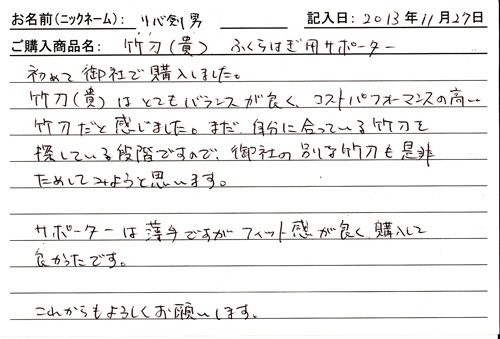 お名前(ニックネーム): 心剣男 記入日: 2013年11月27日
ご購入商品名: 竹刀(貴) ふくらはぎ用サポーター
初めて御社で購入しました。
竹刀(貴)はとてもバランスが良く、コストパフォーマンスの高い
竹刀だと感じました。まだ、自分に合っている竹刀を
探している段階ですので、御社の別な竹刀も是非
ためしてみようと思います。
サポーターは薄手ですがフィット感が良く、購入して
良かったです。
これからもよろしくお願いします。